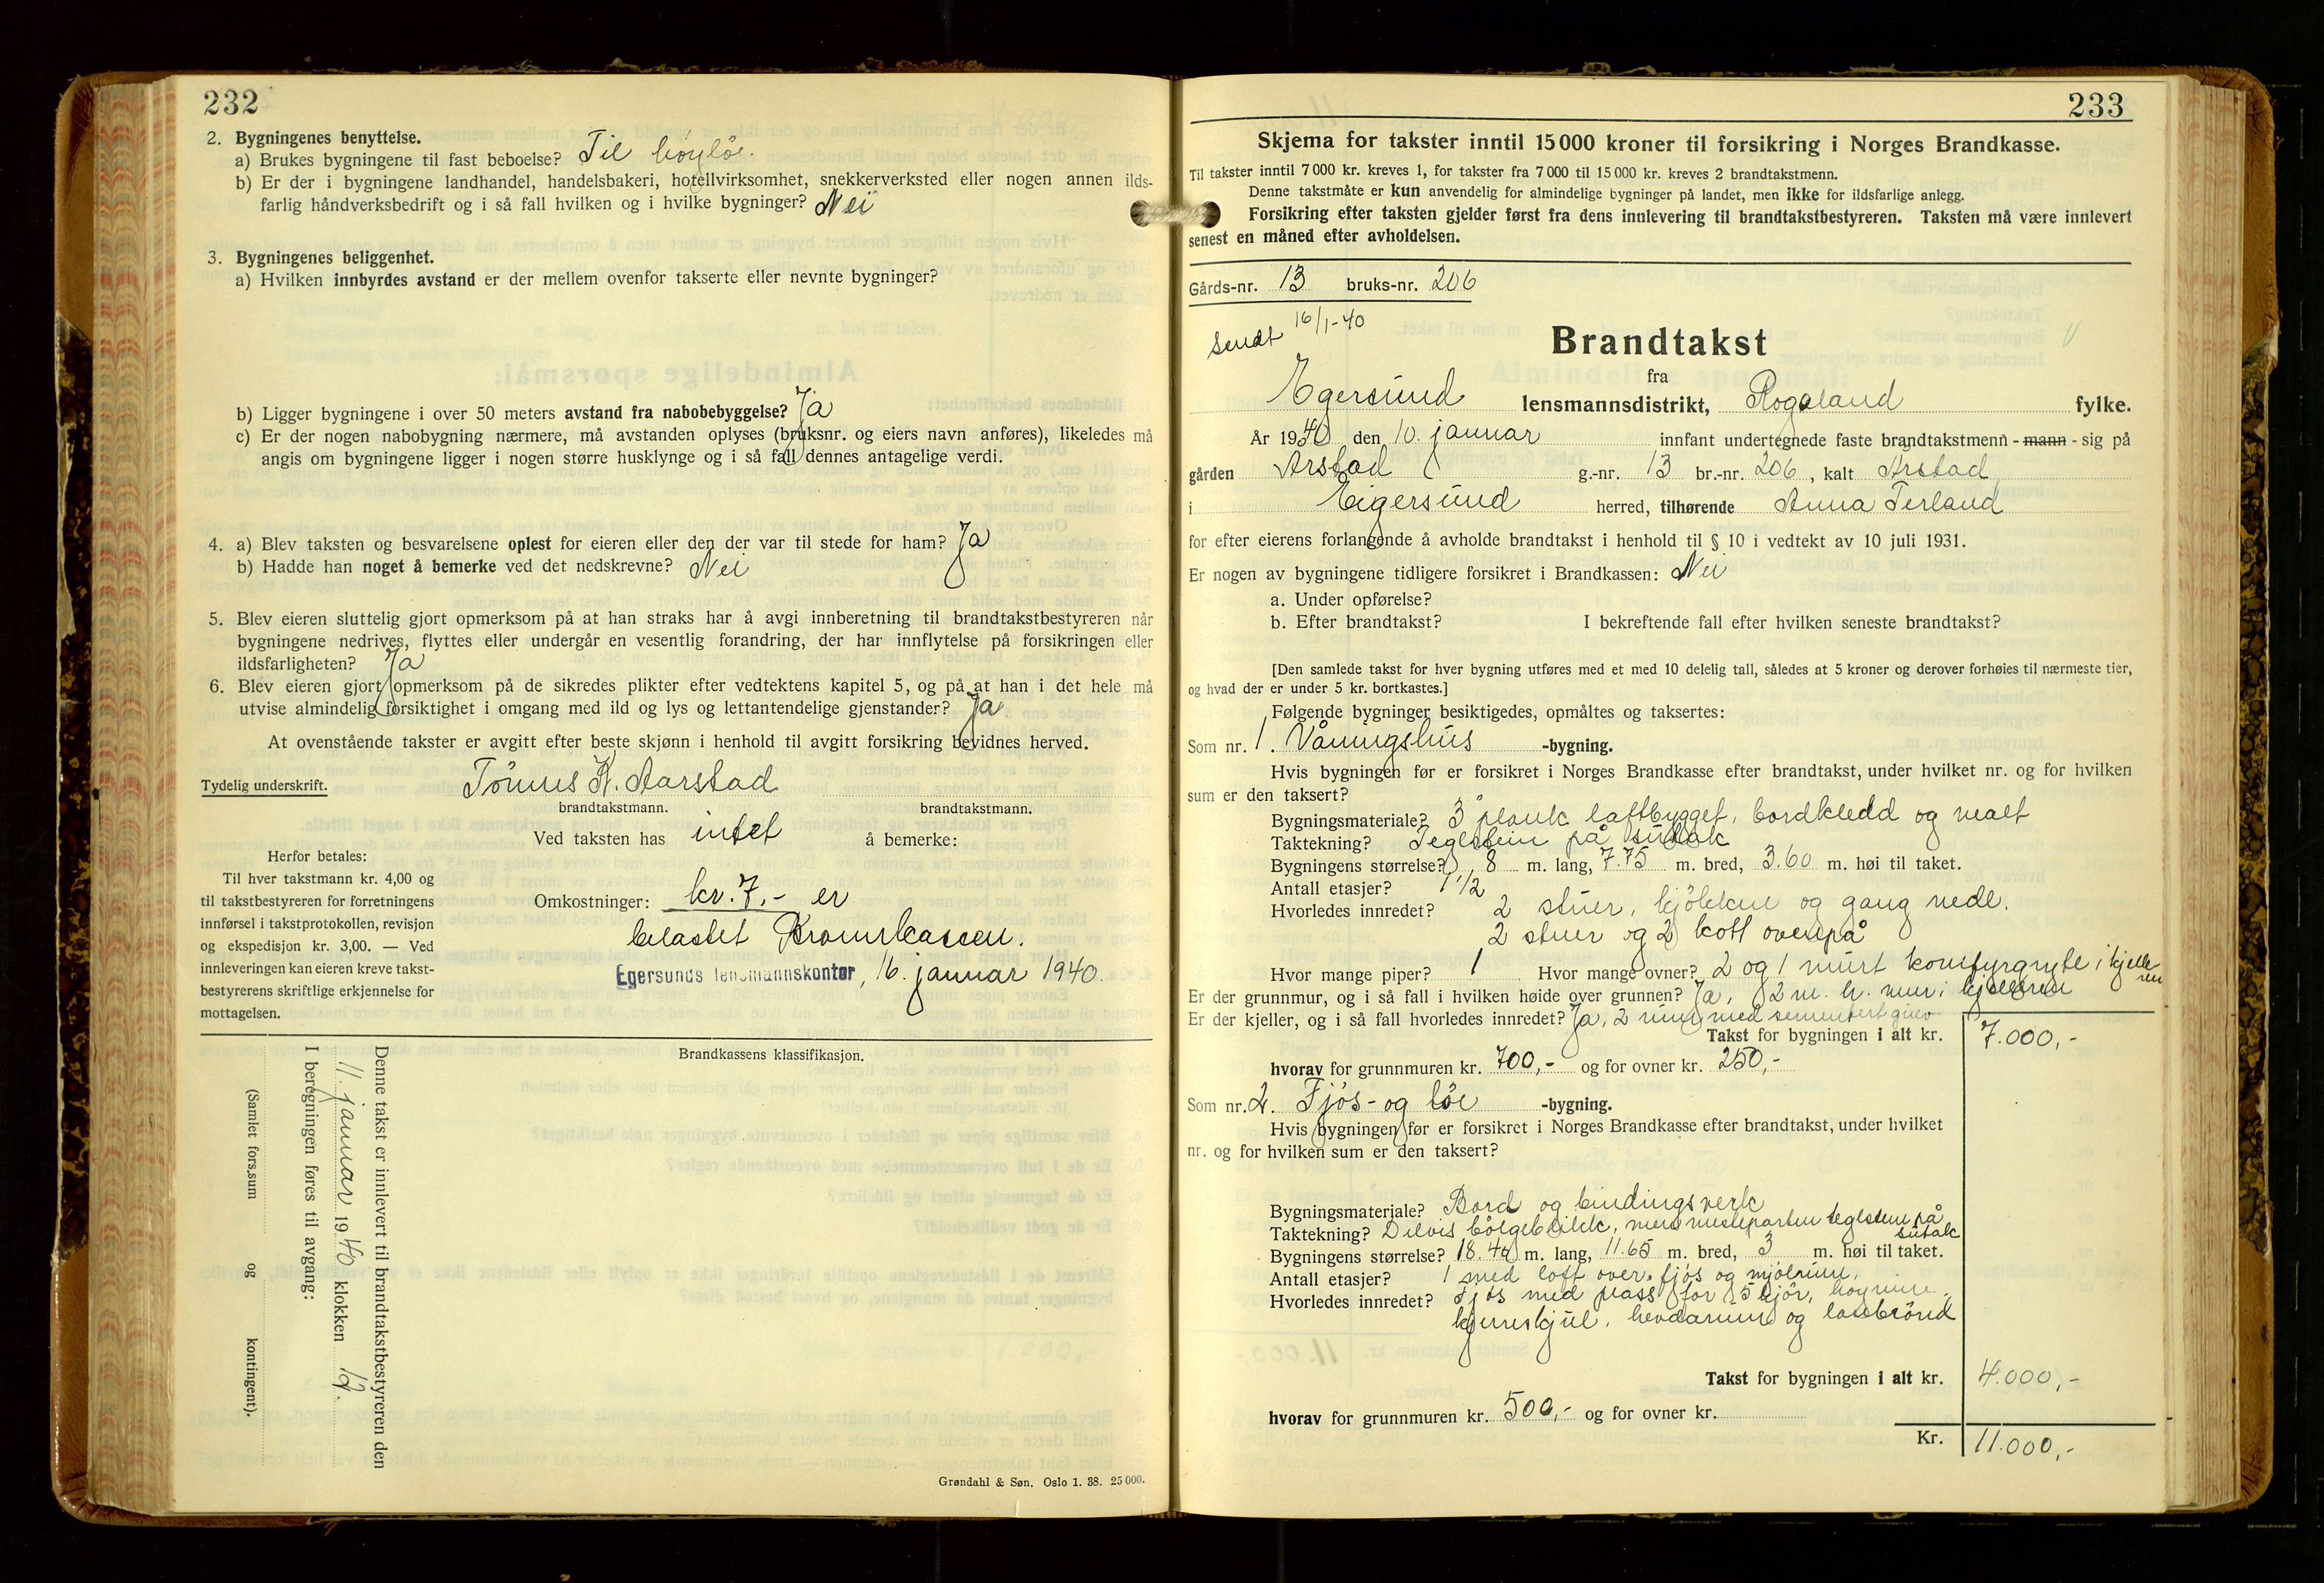 232
2. Bygningenes benyttelse.
a) Brukes bygningene til fast beboelse? Til høyløe.
b) Er der i bygningene landhandel, handelsbakeri, hotellvirksomhet, snekkerverksted eller nogen annen ilds-
farlig håndverksbedrift og i så fall hvilken og i hvilke bygninger? Nei
3. Bygningenes beliggenhet.
a) Hvilken innbyrdes avstand er der mellem ovenfor takserte eller nevnte bygninger?
b) Ligger bygningene i over 50 meters avstand fra nabobebyggelse? Ja
c) Er der nogen nabobygning nærmere, må avstanden oplyses (bruksnr. og eiers navn anføres), likeledes må
angis om bygningene ligger i nogen større husklynge og i så fall dennes antagelige verdi.
4. a) Blev taksten og besvarelsene oplest for eieren eller den der var til stede for ham? Ja
b) Hadde han noget å bemerke ved det nedskrevne? Nei
5. Blev eieren sluttelig gjort opmerksom på at han straks har å avgi innberetning til brandtakstbestyreren når
bygningene nedrives, flyttes eller undergår en vesentlig forandring, der har innflytelse på forsikringen eller
ildsfarligheten? Ja
6. Blev eieren gjort opmerksom på de sikredes plikter efter vedtektens kapitel 5, og på at han i det hele må
utvise almindelig forsiktighet i omgang med ild og lys og lettantendelige gjenstander? Ja
At ovenstående takster er avgitt efter beste skjønn i henhold til avgitt forsikring bevidnes herved.
Tydelig underskrift. Tönnes K. Aarstad
brandtakstmann. brandtakstmann.
Ved taksten has intet å bemerke:
Herfor betales:
Til hver takstmann kr. 4,00 og
til takstbestyreren for forretningens
innførsel i takstprotokollen, revisjon
og ekspedisjon kr. 3,00. — Ved
innleveringen kan eieren kreve takst-
bestyrerens skriftlige erkjennelse for
mottagelsen.
Omkostninger: kr. 7,- er
belastet Brannkassen.
Egersunds lensmannskontor, 16. januar 1940.
Brandkassens klassifikasjon.
Denne takst er innlevert til brandtakstbestyreren den
11. januar 1940 klokken 12.
I beregningen føres til avgang:
(Samlet fors.sum og kontingent).
Grøndahl & Søn. Oslo 1. 38. 25 000.
233
Skjema for takster inntil 15000 kroner til forsikring i Norges Brandkasse.
Til takster inntil 7 000 kr. kreves 1, for takster fra 7 000 til 15 000 kr. kreves 2 brandtakstmenn.
Denne takstmåte er kun anvendelig for almindelige bygninger på landet, men ikke for ildsfarlige anlegg.
Forsikring efter taksten gjelder først fra dens innlevering til brandtakstbestyreren. Taksten må være innlevert
senest en måned efter avholdelsen.
Gårds-nr. 13 bruks-nr. 206
Sendt 16/1-40
Brandtakst
fra
Egersund lensmannsdistrikt, Rogaland fylke.
År 1940 den 10. januar innfant undertegnede faste brandtakstmenn - mann - sig på
gården Arstad g.-nr. 13 br.-nr. 206, kalt Arstad
i Eigersund herred, tilhørende Anna Terland
for efter eierens forlangende å avholde brandtakst i henhold til § 10 i vedtekt av 10 juli 1931.
Er nogen av bygningene tidligere forsikret i Brandkassen: Nei
a. Under opførelse?
b. Efter brandtakst? I bekreftende fall efter hvilken seneste brandtakst?
[Den samlede takst for hver bygning utføres med et med 10 delelig tall, således at 5 kroner og derover forhøies til nærmeste tier,
og hvad der er under 5 kr. bortkastes.]
Følgende bygninger besiktigedes, opmåltes og taksertes:
Som nr. 1. Våningshus -bygning.
Hvis bygningen før er forsikret i Norges Brandkasse efter brandtakst, under hvilket nr. og for hvilken
sum er den taksert?
Bygningsmateriale? 3" plank laftbygget, bordkledd og malt
Taktekning? Teglstein på sutak
Bygningens størrelse? 8 m. lang, 7.75 m. bred, 3.60 m. høi til taket.
Antall etasjer? 1 1/2
Hvorledes innredet? 2 stuer, kjökken og gang nede.
2 stuer og 2 kott ovenpå
Hvor mange piper? 1 Hvor mange ovner? 2 og 1 murt komfyrgryte i kjelle
ren
Er der grunnmur, og i så fall i hvilken høide over grunnen? Ja, 2 m. h. mur i kjelleren
Er der kjeller, og i så fall hvorledes innredet? Ja, 2 rum med sementert gulv
Takst for bygningen i alt kr. 7.000,-
hvorav for grunnmuren kr. 700,- og for ovner kr. 250,-
Som nr. 2. Fjös- og löe -bygning.
Hvis bygningen før er forsikret i Norges Brandkasse efter brandtakst, under hvilket
nr. og for hvilken sum er den taksert?
Bygningsmateriale? Bord og bindingsverk
Taktekning? Delvis bölgeblikk, men mesteparten teglstein på
sutak
Bygningens størrelse? 18.40 m. lang, 11.65 m. bred, 3 m. høi til taket.
Antall etasjer? 1 med loft over fjös og mjölrum.
Hvorledes innredet? Fjös med plass for 5 kjör, höyrum,
kjerreskjul, og lassbrönd
Takst for bygningen i alt kr. 4.000,-
hvorav for grunnmuren kr. 500,- og for ovner kr.
Kr. 11.000,-